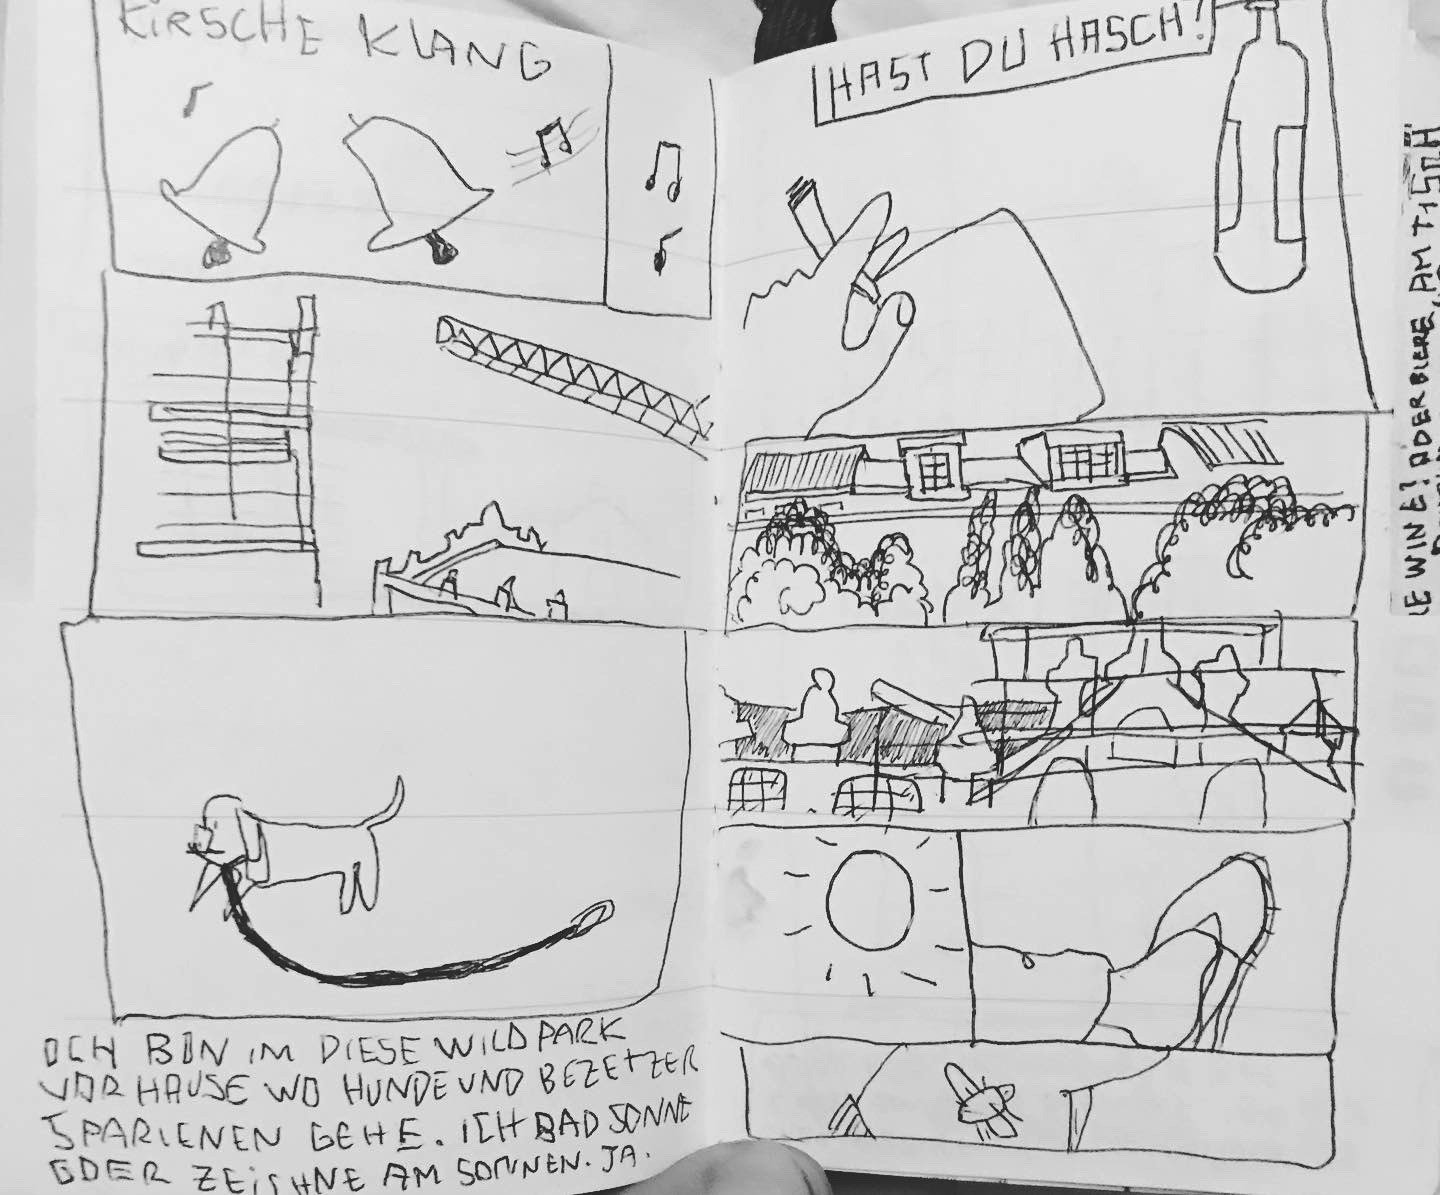 KIRSCHE KLANG
HAST DU HASCH?
ICH BIN IM DIESE WILDPARK
VOR HAUSE WO HUNDE UND BEZETZER
SPARIENEN GEHE. ICH BAD SONNE
ODER ZEISHNE AM SONNEN. JA.
WINE? ODER BIERE, AM TISCH